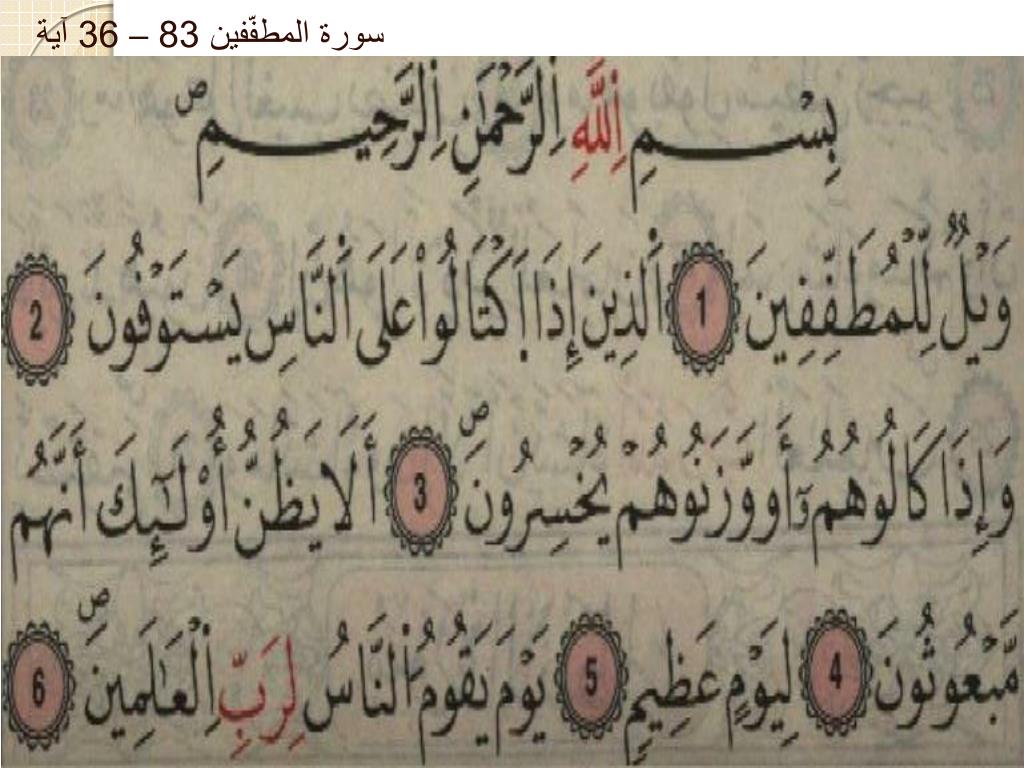 سورة المطفّفين 83 – 36 آية
بِسْمِ اِ۬للَّهِ اِ۬لرَّحْمَٰنِ اِ۬لرَّحِيمِ ص
وَيْلٌ لِّلْمُطَفِّفِينَ 1 اَ۬لذِينَ إِذَا اَ۪كْتَالُواْ عَلَى اَ۬لنَّاسِ يَسْتَوْفُونَ 2
وَإِذَا كَالُوهُمُۥٓ أَو وَّزَنُوهُمْ يُخْسِرُونَ ص 3 أَلَا يَظُنُّ أُوْلَٰٓئِكَ أَنَّهُم
مَّبْعُوثُونَ 4 لِيَوْمٍ عَظِيمٍ 5 يَوْمَ يَقُومُ اُ۬لنَّاسُ لِرَبِّ اِ۬لْعَٰلَمِينَ ص 6